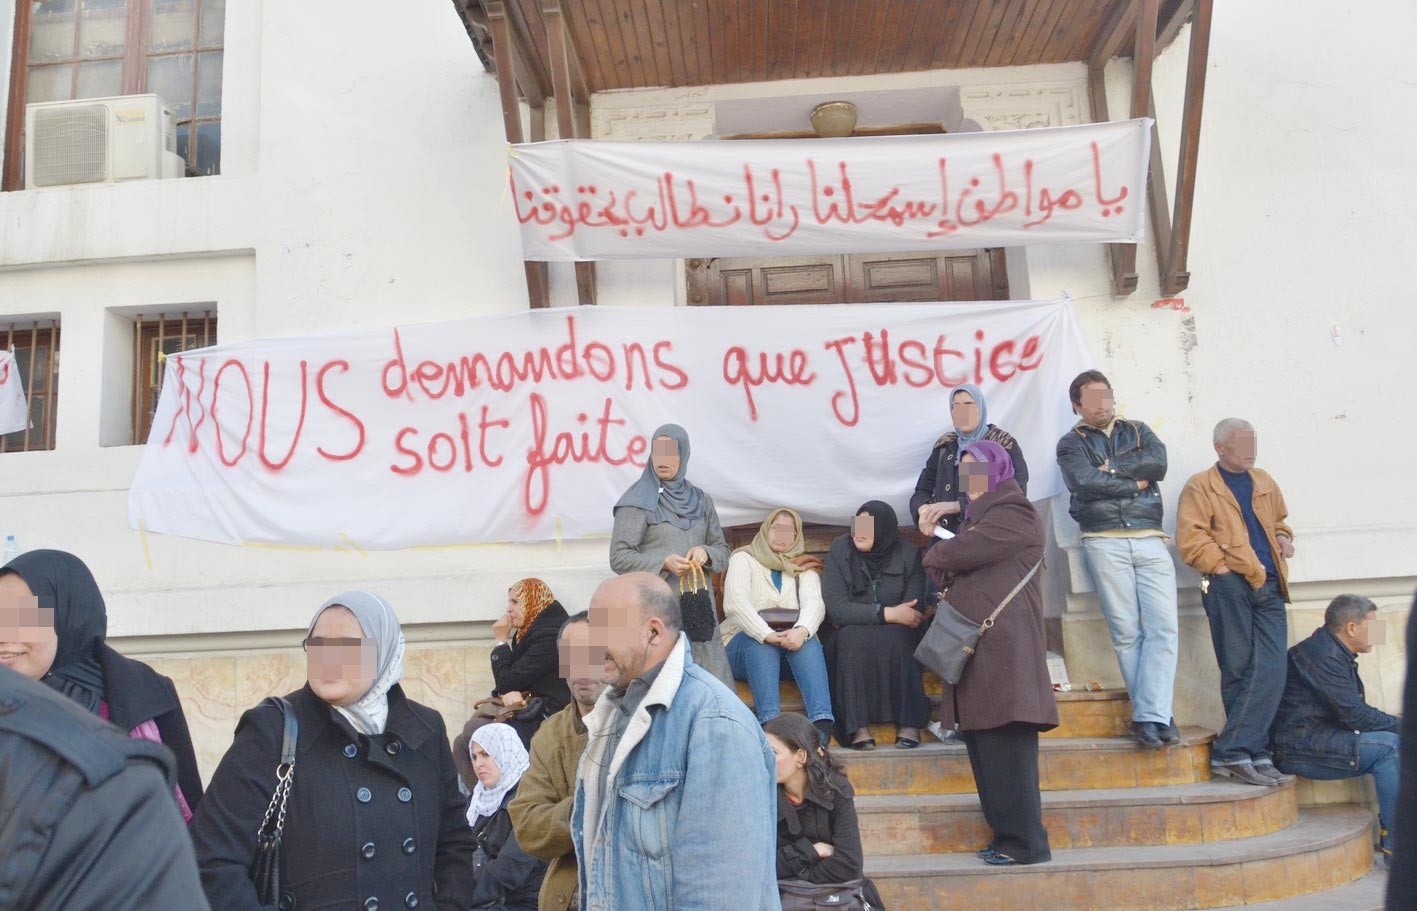 يا مواطن إسمحلنا رانا نطالب بحقوقنا
NOUS demandons que Justice
soit faite